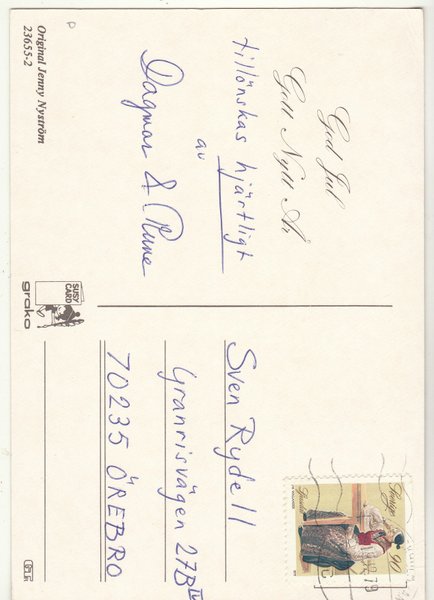 God Jul
Gott Nytt År
tillönskas hjärtligt
av
Dagmar & Rune
Original Jenny Nyström
23655-2
SUSY
CARD
grako
Sven Rydell
Granrisvägen 27B IV
70235 ÖREBRO
Sverige
90